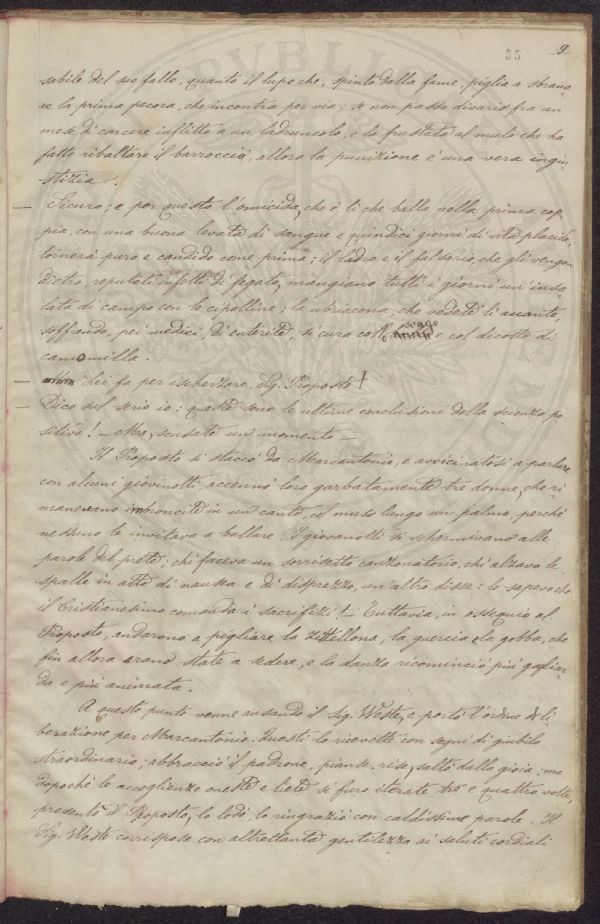 55 9
sabile del suo fallo, quanto il lupo che, spinto dalla fame, piglia a sbrana-
re la prima pecora, che incontra per via; se non passa divario fra un
mese di carcere inflitto a un ladruncolo, e la frustata al mulo che ha
fatto ribaltare il barroccio, allora la punizione è una vera ingiu-
stizia.
— Sicuro; e per questo l'omicida, che è lì che balla nella prima cop-
pia, con una buona levata di sangue e quindici giorni di vita placida,
tornerà puro e candido come prima; il ladro e il falsario, che gli vengon
dietro, reputati infetti di fegato, mangiano tutti i giorni un'insa-
lata di campo con le cipolline; la ubriacona, che vedete lì accanto,
soffrendo, pei medici, di enterite, si cura col e col decotto di
camomilla.
— Lei fa per ischerzare, Sig. Proposto!
— Dico sul serio io: queste sono le ultime conclusioni della scienza po-
sitiva! — Ma, scusate un momento —
Il Proposto si staccò da Marcantonio, e avvicinatosi a parlare
con alcuni giovinotti, accennò loro garbatamente tre donne, che ri-
manevano imbroncite in un canto, col muso lungo un palmo, perchè
nessuno le invitava a ballare. I giovanotti si schermivano alle
parole del prete; chi faceva un sorrisetto canzonatorio, chi alzava le
spalle in atto di nausea e di disprezzo, un altro disse: lo sapevo che
il Cristianesimo comanda i sacrifizi! — Tuttavia, in ossequio al
Proposto, andarono a pigliare la zittellona, la guercia e la gobba, che
fin allora erano state a sedere, e la danza ricominciò più gagliar-
da e più animata.
A questo punto venne ansando il Sig. Weste, e portò l'ordine di li-
berazione per Marcantonio. Questi lo ricevette con segni di giubilo
straordinario; abbracciò il padrone, pianse, rise, saltò dalla gioia; ma
dopochè le accoglienze oneste e liete si furo iterate tre e quattro volte,
presentò il Proposto, lo lodò, lo ringraziò con caldissime parole. Il
Sig. Weste corrispose con altrettanta gentilezza ai saluti cordiali